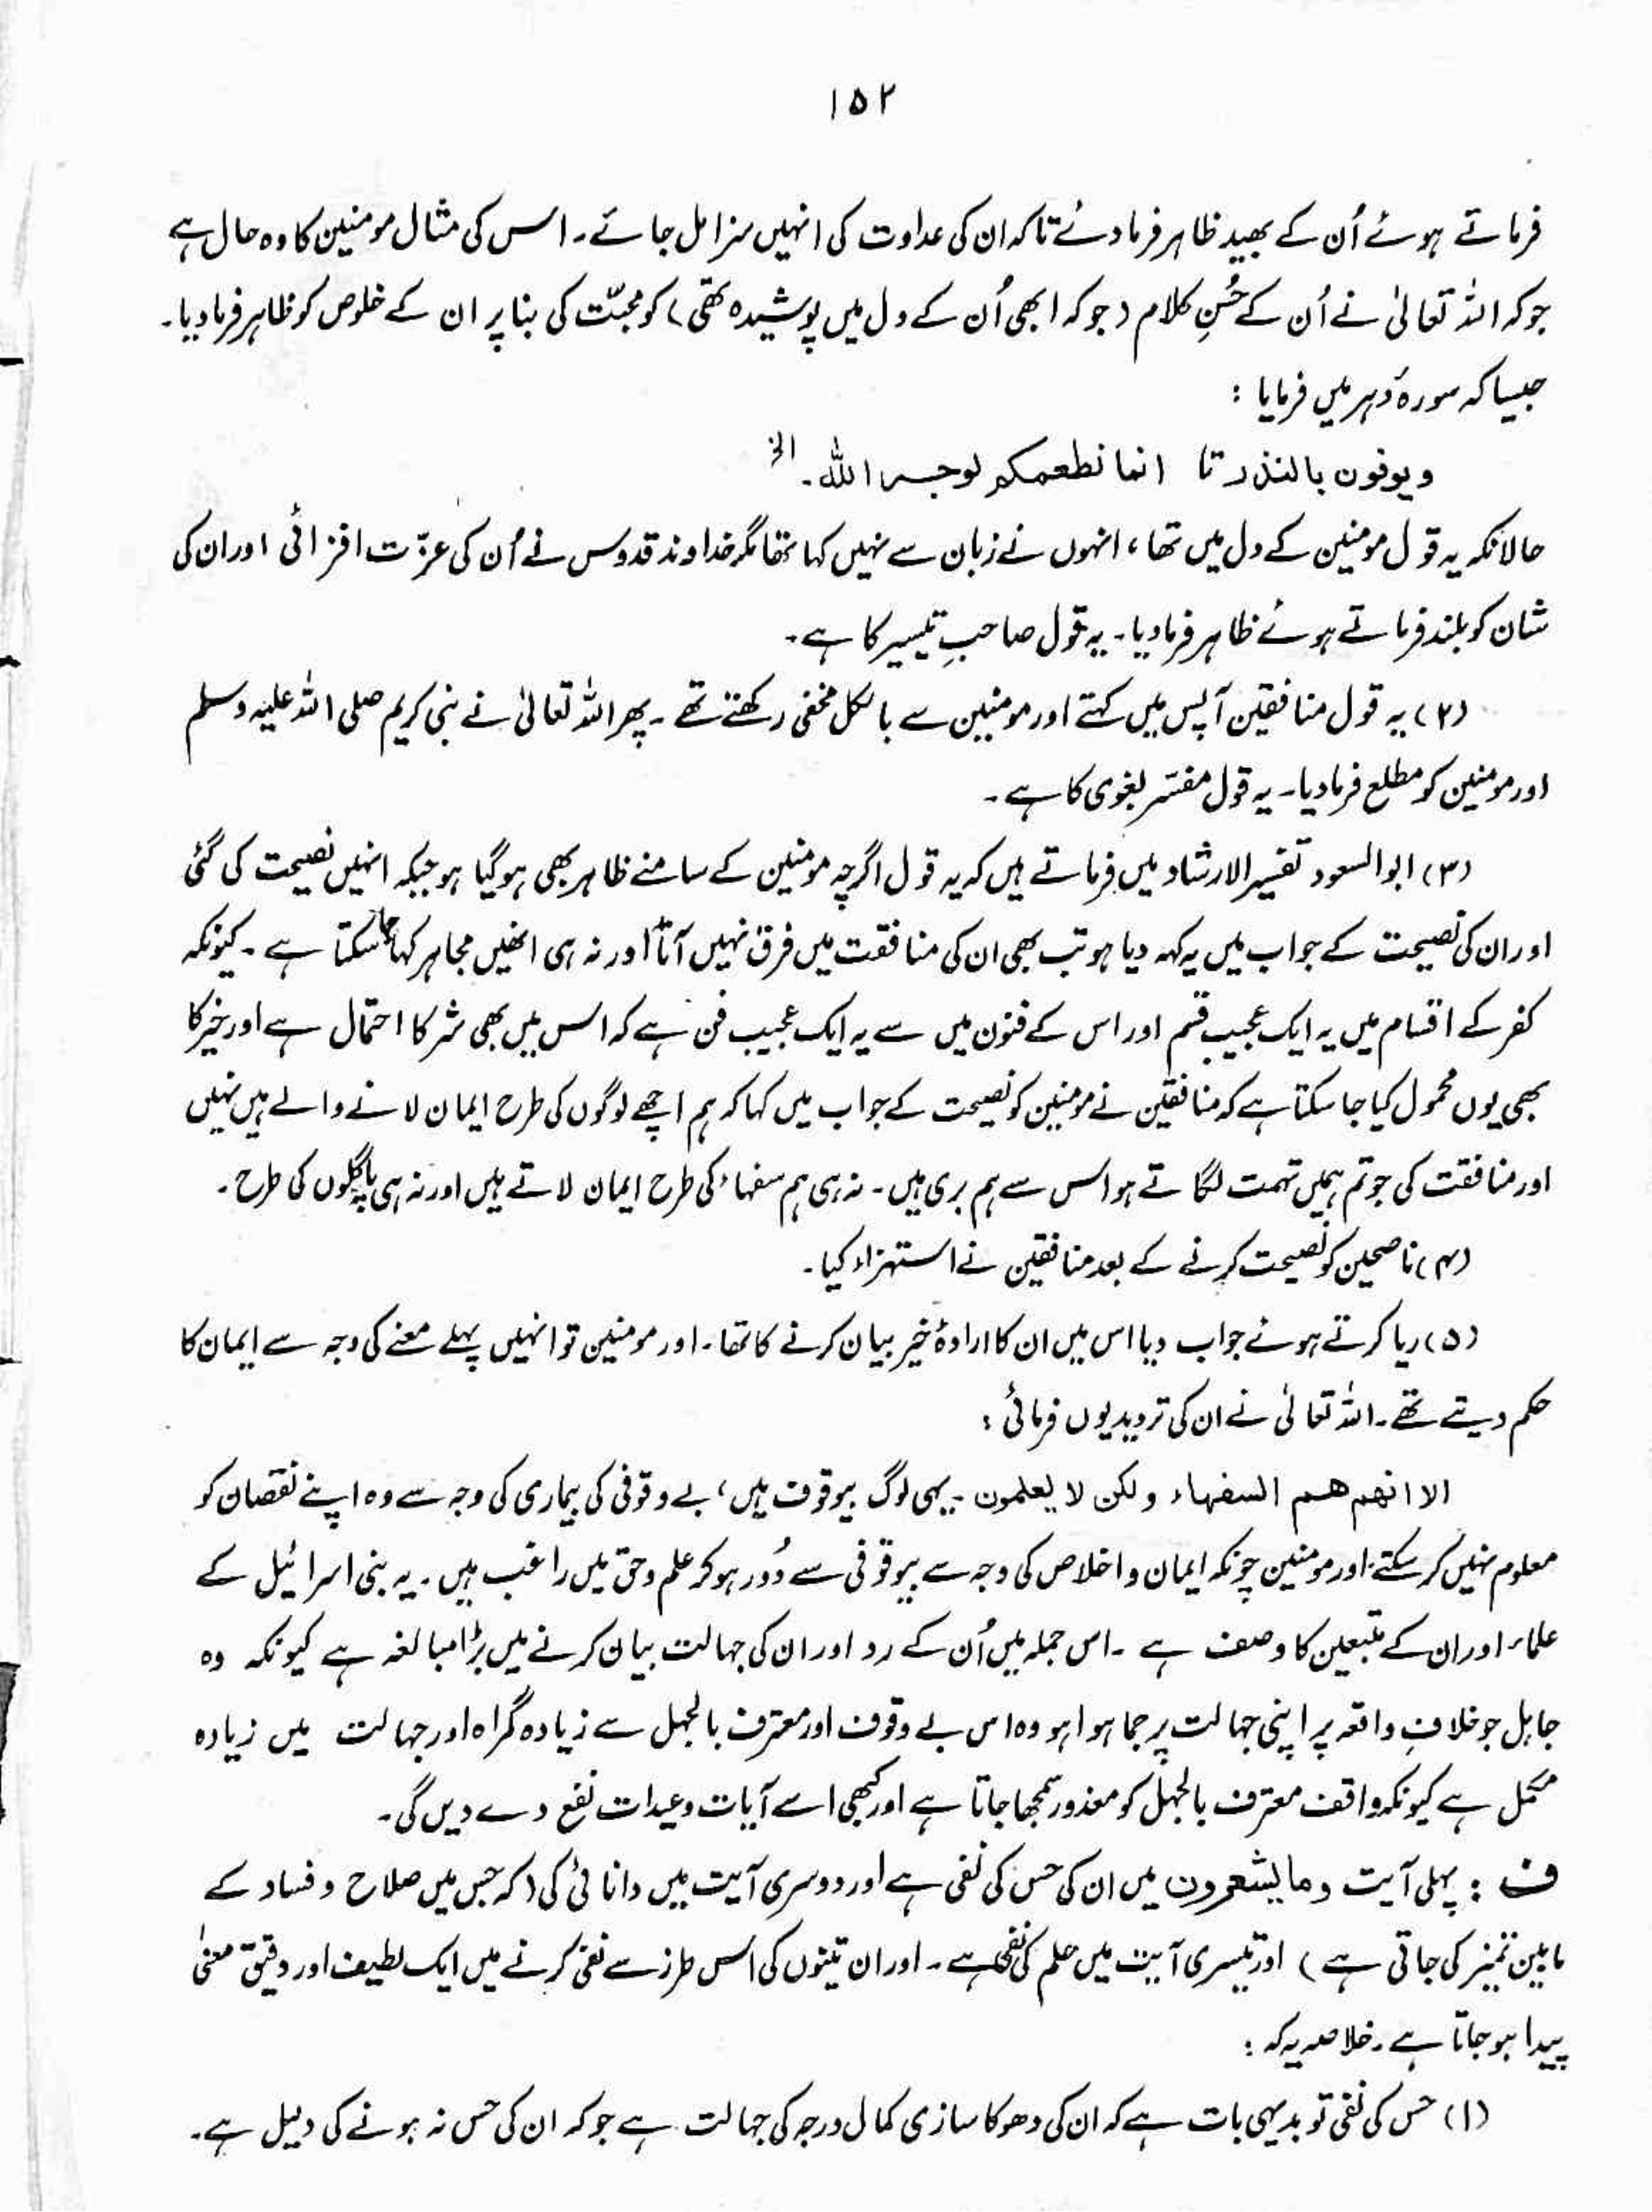 ۱۵۲
فرماتے ہوئے اُن کے بھید ظاہر فرما دئے تاکہ ان کی عداوت کی انہیں سزا مل جائے۔ اس کی مثال مومنین کا وہ حال ہے
جو کہ اللہ تعالیٰ نے اُن کے حُسنِ کلام (جو کہ ابھی اُن کے دل میں پوشیدہ تھی) کو محبّت کی بنا پر ان کے خلوص کو ظاہر فرما دیا۔
جیسا کہ سورۂ دہر میں فرمایا :
ویوفون بالنذر تا انما نطعمکم لوجہ اللہ۔ الخ
حالانکہ یہ قول مومنین کے دل میں تھا، انہوں نے زبان سے نہیں کہا تھا مگر خداوند قدوس نے اُن کی عزّت افزائی اور ان کی
شان کو بلند فرماتے ہوئے ظاہر فرما دیا۔ یہ قول صاحبِ تیسیر کا ہے۔
(۲) یہ قول منافقین آپس میں کہتے اور مومنین سے بالکل مخفی رکھتے تھے۔ پھر اللہ تعالیٰ نے نبی کریم صلی اللہ علیہ وسلم
اور مومنین کو مطلع فرما دیا۔ یہ قول مفسّر بغوی کا ہے۔
(۳) ابوالسعود تفسیر الارشاد میں فرماتے ہیں کہ یہ قول اگرچہ مومنین کے سامنے ظاہر بھی ہو گیا ہو جبکہ انہیں نصیحت کی گئی
اور ان کی نصیحت کے جواب میں یہ کہہ دیا ہو تب بھی ان کی منافقت میں فرق نہیں آتا اور نہ ہی انھیں مجاہر کہا جا سکتا ہے۔ کیونکہ
کفر کے اقسام میں یہ ایک عجیب قسم اور اس کے فنون میں سے یہ ایک عجیب فن ہے کہ اس میں بھی شر کا احتمال ہے اور خیر کا
بھی یوں محمول کیا جا سکتا ہے کہ منافقین نے مومنین کو نصیحت کے جواب میں کہا کہ ہم اچھے لوگوں کی طرح ایمان لانے والے ہیں نہیں
اور منافقت کی جو تم ہمیں تہمت لگاتے ہو اس سے ہم بری ہیں۔ نہ ہی ہم سفہاء کی طرح ایمان لاتے ہیں اور نہ ہی پاگلوں کی طرح۔
(۴) ناصحین کو نصیحت کرنے کے بعد منافقین نے استہزاء کیا۔
(۵) ریا کرتے ہوئے جواب دیا اس میں ان کا ارادۂ خیر بیان کرنے کا تھا۔ اور مومنین تو انہیں پہلے معنے کی وجہ سے ایمان کا
حکم دیتے تھے۔ اللہ تعالیٰ نے ان کی تردید یوں فرمائی :
الا انھم ھم السفہاء ولکن لا یعلمون۔ یہی لوگ بیوقوف ہیں، بے وقوفی کی بیماری کی وجہ سے وہ اپنے نقصان کو
معلوم نہیں کر سکتے اور مومنین چونکہ ایمان و اخلاص کی وجہ سے بیوقوفی سے دُور ہو کر علم و حق میں راغب ہیں۔ یہ بنی اسرائیل کے
علماء اور ان کے متبعین کا وصف ہے۔ اس جملہ میں اُن کے رد اور ان کی جہالت بیان کرنے میں بڑا مبالغہ ہے کیونکہ وہ
جاہل جو خلافِ واقعہ پر اپنی جہالت پر جما ہوا ہو وہ اس بے وقوف اور معترف بالجہل سے زیادہ گمراہ اور جہالت میں زیادہ
مکمل ہے کیونکہ واقف معترف بالجہل کو معذور سمجھا جاتا ہے اور کبھی اسے آیات و عیدات نفع دے دیں گی۔
ف : پہلی آیت وما یشعرون میں ان کی حس کی نفی ہے اور دوسری آیت میں دانائی کی (کہ جس میں صلاح و فساد کے
مابین تمیز کی جاتی ہے) اور تیسری آیت میں حلم کی نفی ہے۔ اور ان تینوں کی اس طرز سے نفی کرنے میں ایک لطیف اور دقیق معنیٰ
پیدا ہو جاتا ہے۔ خلاصہ یہ کہ :
(۱) حس کی نفی تو بدیہی بات ہے کہ ان کی دھوکا سازی کمال درجہ کی جہالت ہے جو کہ ان کی حس نہ ہونے کی دلیل ہے۔